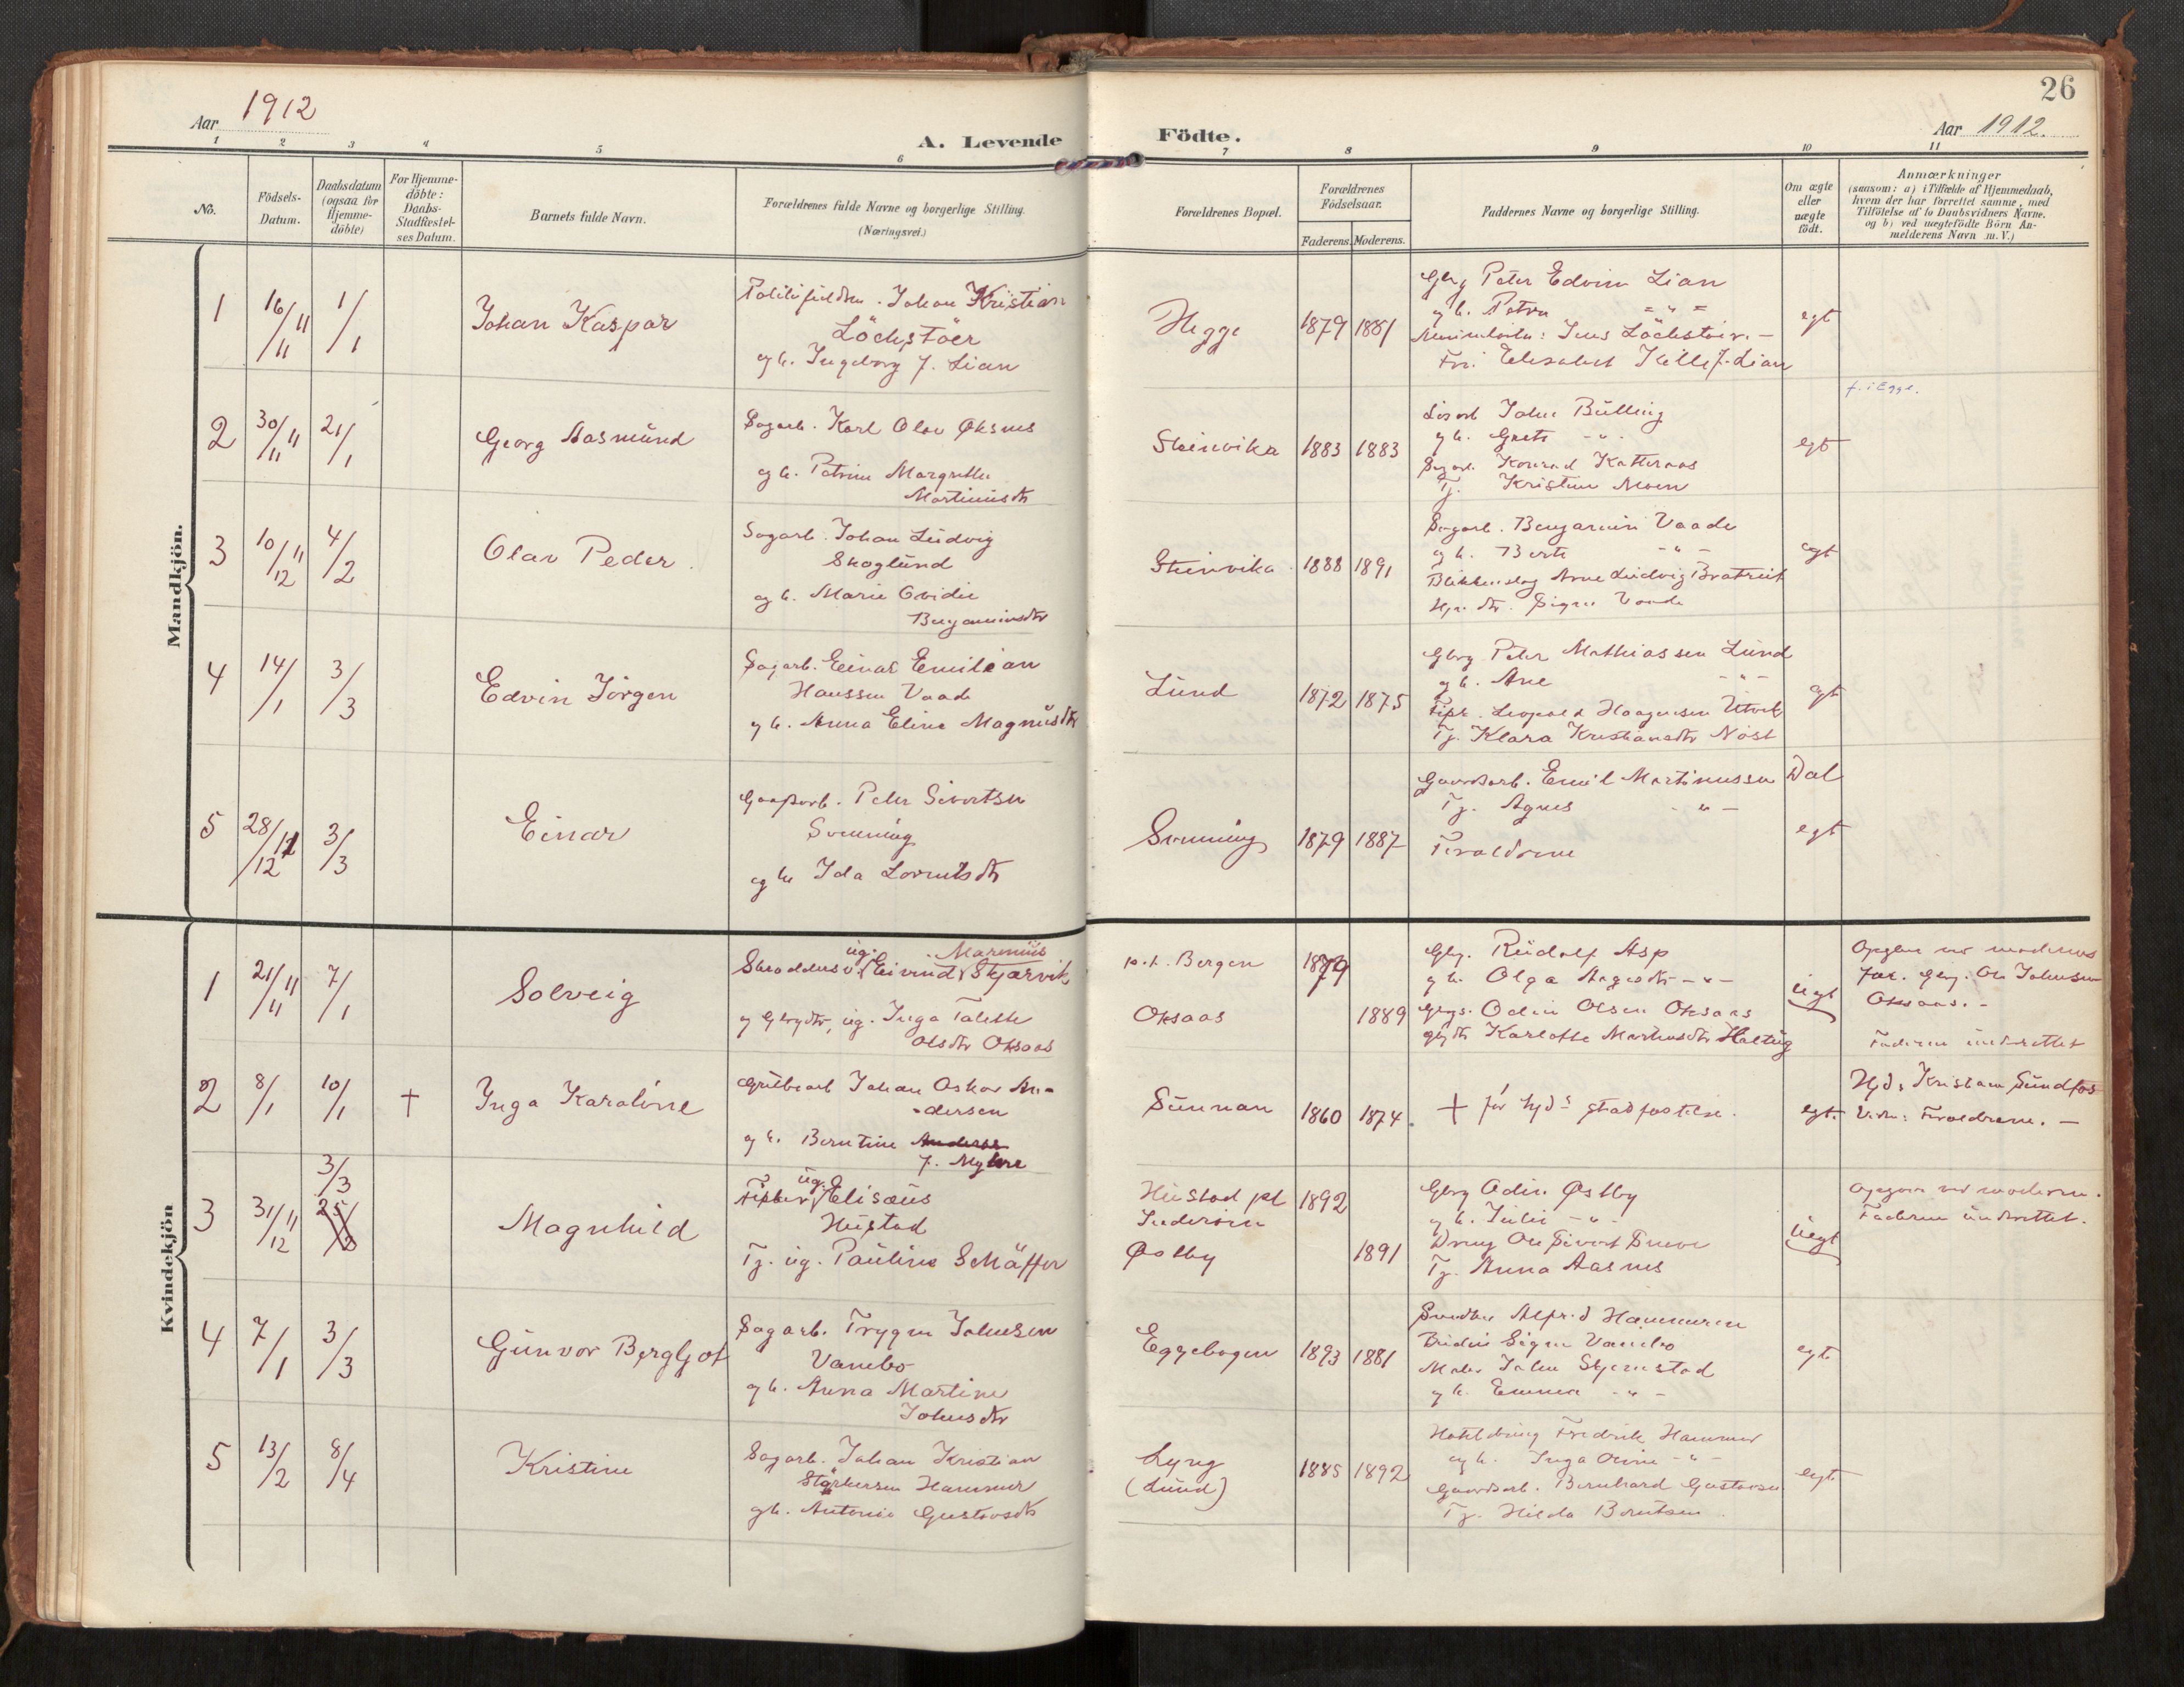 26
Aar 1912
A. Levende Födte.
Aar 1912.
1 2 3 4 5 6 7 8 9 10 11
No.
Födsels-
Datum.
Daabsdatum
(ogsaa for
Hjemme-
döbte)
For Hjemme-
döbte:
Daabs-
Stadfæstel-
ses Datum.
Barnets fulde Navn.
Forældrenes fulde Navne og borgerlige Stilling.
(Næringsvei.)
Forældrenes Bopæl.
Forældrenes
Födselsaar.
Faderens. Moderens.
Faddernes Navne og borgerlige Stilling.
Om ægte
eller
uægte
födt.
Anmærkninger
(saasom: a) i Tilfælde af Hjemmedaab,
hvem der har forrettet samme, med
Tilföielse af to Daabsvidners Navne.
og b) ved uægtefödte Börn An-
melderens Navn m. V.)
Mandkjön.
1 16/11 11 1/1 Johan Kaspar
Johan Kristian
Löchstöer
gh. Ingeborg f. Lian
Hegge 1879 1881
Gbrg Peter Edvin Lian
gh. Petra
Jens Löchstöer. -
Elisabet f. Lian
egt
f. i Egge.
2 30/11 11 21/1 Georg Aasmund
Sagarb. Karl Olav Øksnes
gh. Petrine Margrethe
Martinusdtr
Steinvika 1883 1883
John Bülling
gh. Grete - " -
Sagarb. Konrad Katteraas
Tj. Kristine Moen
egt
3 10/12 11 4/2 Olav Peder.
Sagarb. Johan Ludvig
Skoglund
og h. Marie Ovidie
Benjaminsdtr
Steinvika. 1888 1891
Sagarb. Benjamin Vaade
gh. Berte - " -
Arne Ludvig Bratreit
Signe Vaade
egt
4 14/1 3/3 Edvin Jörgen
Sagarb. Einar Emilian
Hanssen Vaade
gh. Anna Eline Magnusdtr
Lund 1872 1875
Gbrg Peter Mathiassen Lund
gh. Ane - " -
Leopold Haagensen Utvik
Tj. Klara Kristiansdtr Nöst
egt
5 28/12 11 3/3 Einar
Peter Sivertsen
Svenning
og h. Ida Lorentsdtr
Svenning 1879 1887
Gaardsarb. Emil Martinussen Dal
Tj. Agnes - " -
Forældrene
egt
Kvindekjön
1 21/11 11 7/1 Solveig
ug. Marenius
Eivind Skjærvik
ug. Inga Talette
Olsdtr Oksaas
p.t. Bergen 1879
Oksaas 1889
Gbrg. Rudolf Asp
gh. Olga Aagesdtr - " -
Odin Olsen Oksaas
Karlotte Markusdtr Haltug
uegt
Opgivet ved moderens
far. Gbrg. Ole Johnsen
Oksaas. -
Faderen underrettet
2 8/1 10/1 † Inga Karoline
Johan Oskar An-
dersen
gh. Berntine
f. Myhre
Sunnan 1860 1874.
† för hjds stadfæstelse.
egt.
Hjd. Kristian Sundfos
Vidn: Forældrene. -
3 31/12 11 3/3 Magnhild
Fisker ug. Elisæus
Hustad
Tj. ug. Pauline Schäffer
Hustad pt 1892
Inderöen
Østby 1891
Gbrg Odin Østby
gh. Julie - " -
Tj. Anna Aasnes
uegt
Opgivet ved moderen.
Faderen underrettet.
4 7/1 3/3 Gunvor Bergljot
Sagarb. Trygve Johnsen
Vanebo
gh. Anna Martine
Johnsdtr
Eggebogen 1893 1881
Alfred Hammeren
Signe Vanebo
Maler John Skjerstad
gh. Emma - " -
egt.
5 13/2 8/4 Kristine
Sagarb. Johan Kristian
Störkersen Hammer
gh. Antonie Gustavsdtr
Lyng 1885 1892
(Lund)
Fredrik Hammer
og h. Inga Oline - " -
Gaardsarb. Bernhard Gustavsen
Tj. Hilda Berntsen
egt